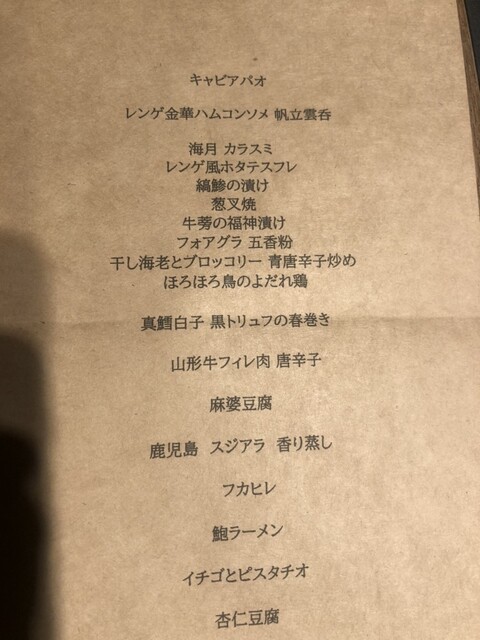 キャビアパオ
レンゲ金華ハムコンソメ 帆立雲呑
海月 カラスミ
レンゲ風ホタテスフレ
縞鯵の漬け
葱叉焼
牛蒡の福神漬け
フォアグラ 五香粉
干し海老とブロッコリー 青唐辛子炒め
ほろほろ鳥のよだれ鶏
真鱈白子 黒トリュフの春巻き
山形牛フィレ肉 唐辛子
麻婆豆腐
鹿児島 スジアラ 香り蒸し
フカヒレ
鮑ラーメン
イチゴとピスタチオ
杏仁豆腐